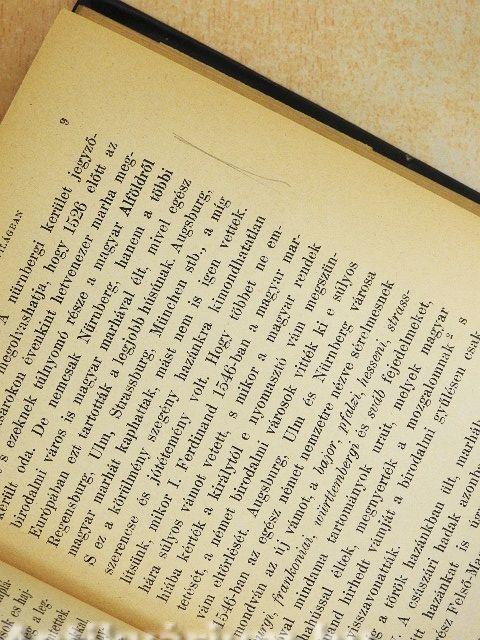 9
VILÁGBAN
A nürnbergi kerület jegyző-
megolvashatja, hogy 1526 előtt az
vásárokon évenkint hetvenezer marha meg-
s ezeknek túlnyomó része a magyar Alföldről
került oda. De nemcsak Nürnberg, hanem a többi
birodalmi város is magyar marhával élt, mivel egész
Európában ezt tartották a legjobb húsúnak. Augsburg,
Regensburg, Ulm, Strassburg, München stb., a míg
magyar marhát kaphattak, mást nem is igen vettek.
S ez a körülmény szegény hazánkra kimondhatatlan
szerencse és jótétemény volt. Hogy többet ne em-
lítsünk, mikor I. Ferdinánd 1546-ban a magyar mar-
hára súlyos vámot vetett, s mikor a magyar rendek
hiába kérték a királytól e nyomasztó vám megszün-
tetését, a német birodalmi városok vitték ki e súlyos
vám eltörlését. Augsburg, Ulm és Nürnberg városa
1546-ban az egész német nemzetre nézve sérelmesnek
mondván az új vámot, a bajor, pfalzi, hesseni, strass-
frankoniai, württembergi és sváb fejedelmeket,
mindama tartományok urait, melyek magyar
hússal éltek, megnyerték a mozgalomnak² s
hirhedt vámját a birodalmi gyűlésen csak
visszavonatták.
a török hazánkban ült, marhá
A császári hadak azonban
hazánkat is úgy
Felső-Ma